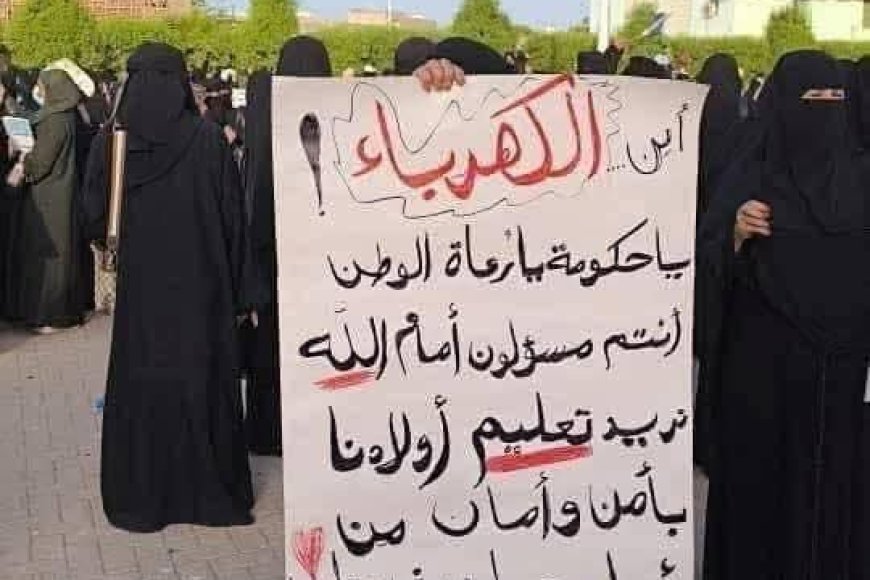 أين... الكهرباء !
يا حكومة يا رعاة الوطن
أنتم مسؤلون أمام الله
نريد تعليم أولادنا
بأمن وأمان من